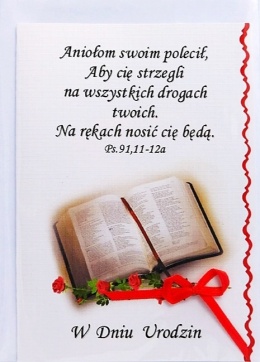 Aniołom swoim polecił,
Aby cię strzegli
na wszystkich drogach
twoich.
Na rękach nosić cię będą.
Ps.91,11-12a
W Dniu Urodzin